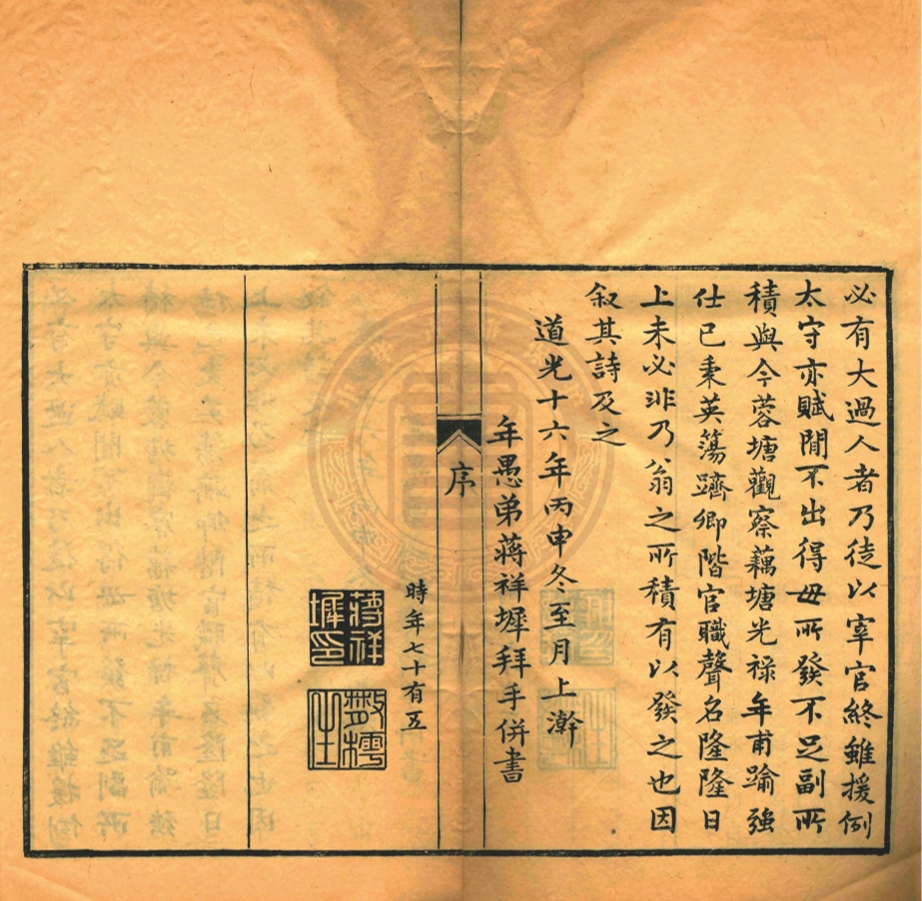 必有大過人者乃徒以宰官終雖援例
太守亦賦閒不出得毋所發不足副所
積與今蓉塘觀察藕塘光祿年甫踰強
仕已秉英蕩躋卿階官職聲名隆隆日
上未必非乃翁之所積有以發之也因
叙其詩及之
道光十六年丙申冬至月上澣
年愚弟蔣祥墀拜手併書
序
時年七十有五
蔣祥墀印